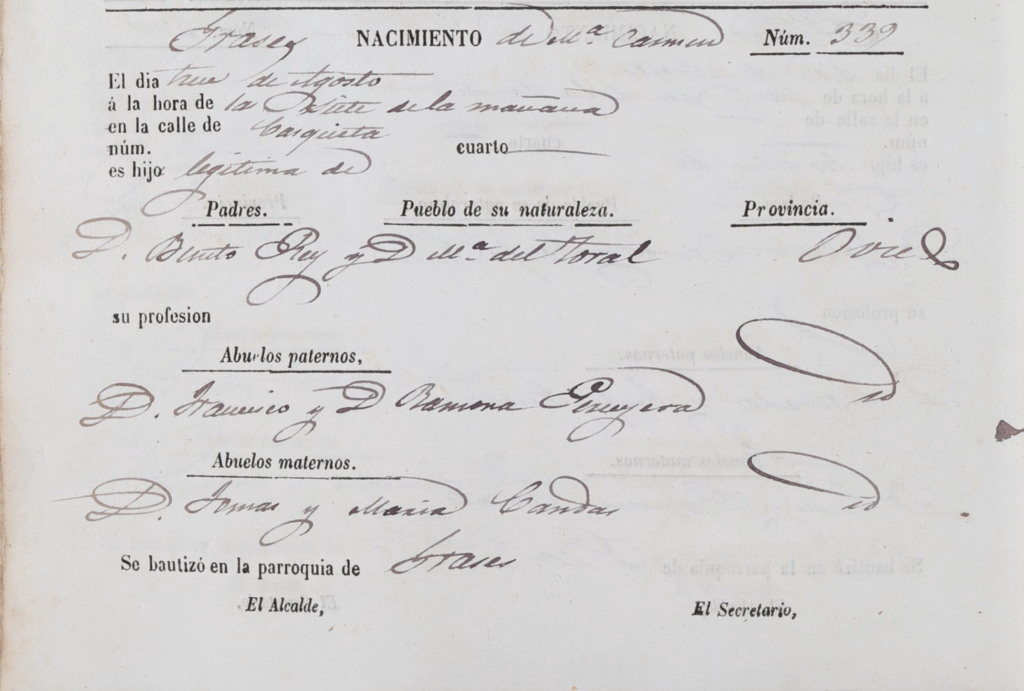 Frases NACIMIENTO de Mª Carmen Núm. 339
El dia trece de Agosto
á la hora de la siete de la mañana
en la calle de
núm. cuarto
es hijo legitima de
Padres. Pueblo de su naturaleza. Provincia.
D. Benito Rey y D Mª del Toral Ovied
su profesion
Abuelos paternos,
D. Francisco y D Ramona id
Abuelos maternos.
D. Tomas y Maria Candas id
Se bautizó en la parroquia de Frases
El Alcalde, El Secretario,